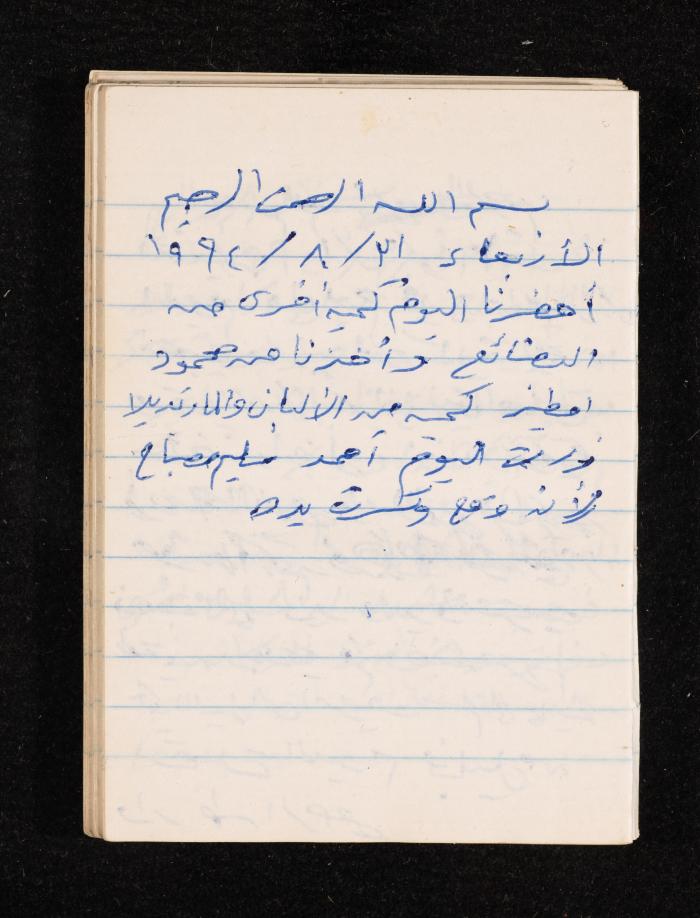 بسم الله الرحمن الرحيم
الأربعاء ٣١ / ٨ / ١٩٩٤
أحضرنا اليوم كمية أخرى من
البضائع وأخذنا من محمود
كمية من الألبان والمارتديلا
زرت اليوم أحمد سليم مصباح
لأنه وقع وكسرت يده